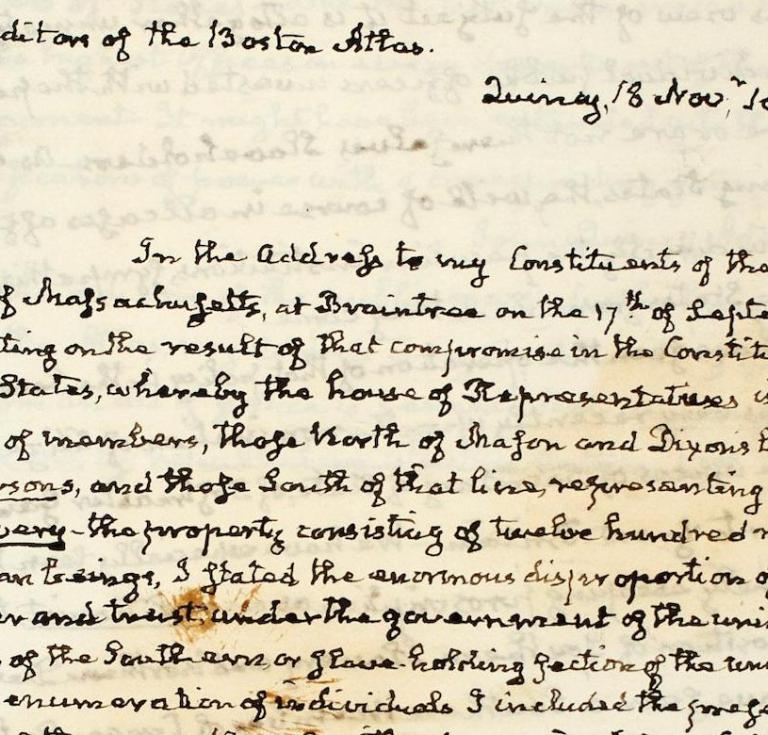 ditors of the Boston Atlas.
Quincy, 18 Nov.r 18
In the Address to my Constituents of the
of Massachusetts, at Braintree on the 17th of Septe
ting on the result of that compromise in the Constitu
States, whereby the house of Representatives is
of members, those North of Mason and Dixon's L
rsons, and those South of that line, representing
very - the property consisting of twelve hundred m
an beings, I stated the enormous disproportion of
er and trust, under the government of the uni
of the Southern, or slave-holding section of the un
enumeration of individuals I included the pres